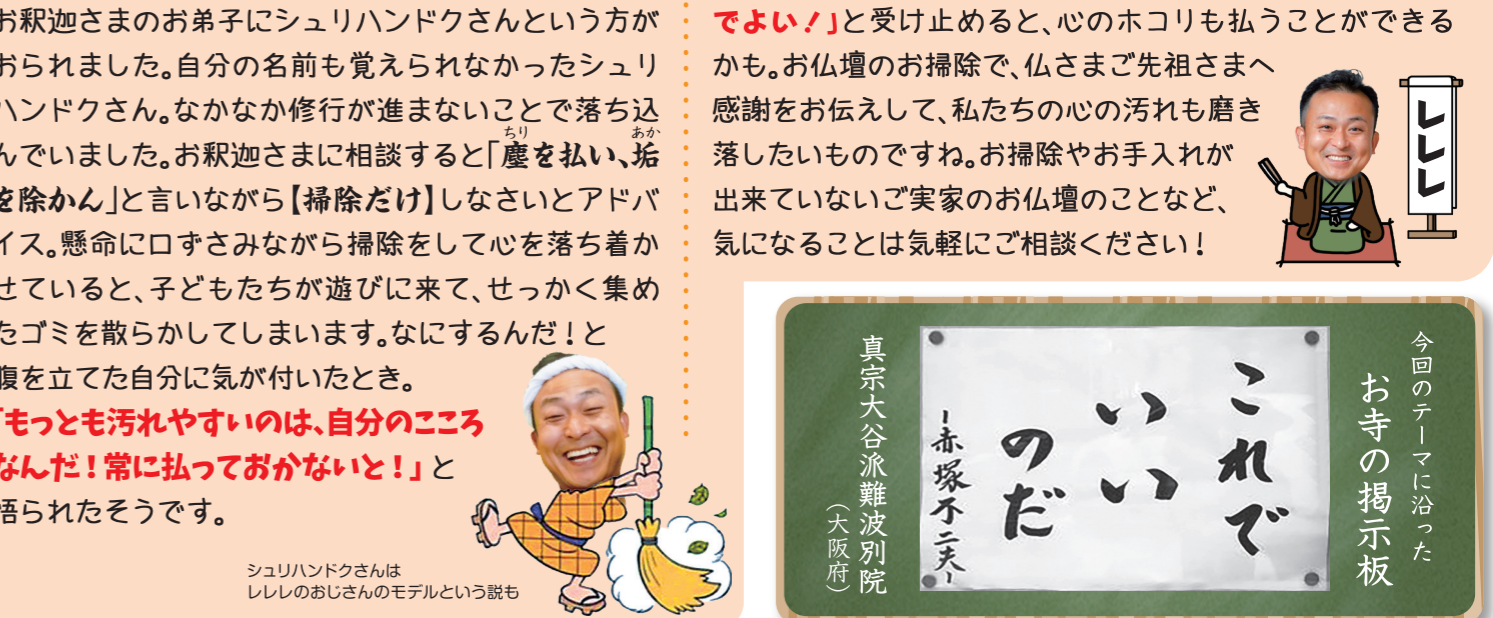 お釈迦さまのお弟子にシュリハンドクさんという方が
おられました。自分の名前も覚えられなかったシュリ
ハンドクさん。なかなか修行が進まないことで落ち込
んでいました。お釈迦さまに相談すると「塵を払い、垢
ちり
あか
を除かん」と言いながら【掃除だけ】しなさいとアドバ
イス。懸命に口ずさみながら掃除をして心を落ち着か
せていると、子どもたちが遊びに来て、せっかく集め
たゴミを散らかしてしまいます。なにするんだ！と
腹を立てた自分に気が付いたとき。
「もっとも汚れやすいのは、自分のこころ
なんだ！常に払っておかないと！」と
悟られたそうです。
シュリハンドクさんは
レレレのおじさんのモデルという説も
でよい！」と受け止めると、心のホコリも払うことができる
かも。お仏壇のお掃除で、仏さまご先祖さまへ
感謝をお伝えして、私たちの心の汚れも磨き
落したいものですね。お掃除やお手入れが
出来ていないご実家のお仏壇のことなど、
気になることは気軽にご相談ください！
レレレ
今回のテーマに沿った
お寺の掲示板
これで
いい
のだ
ー赤塚不二夫ー
真宗大谷派難波別院
（大阪府）